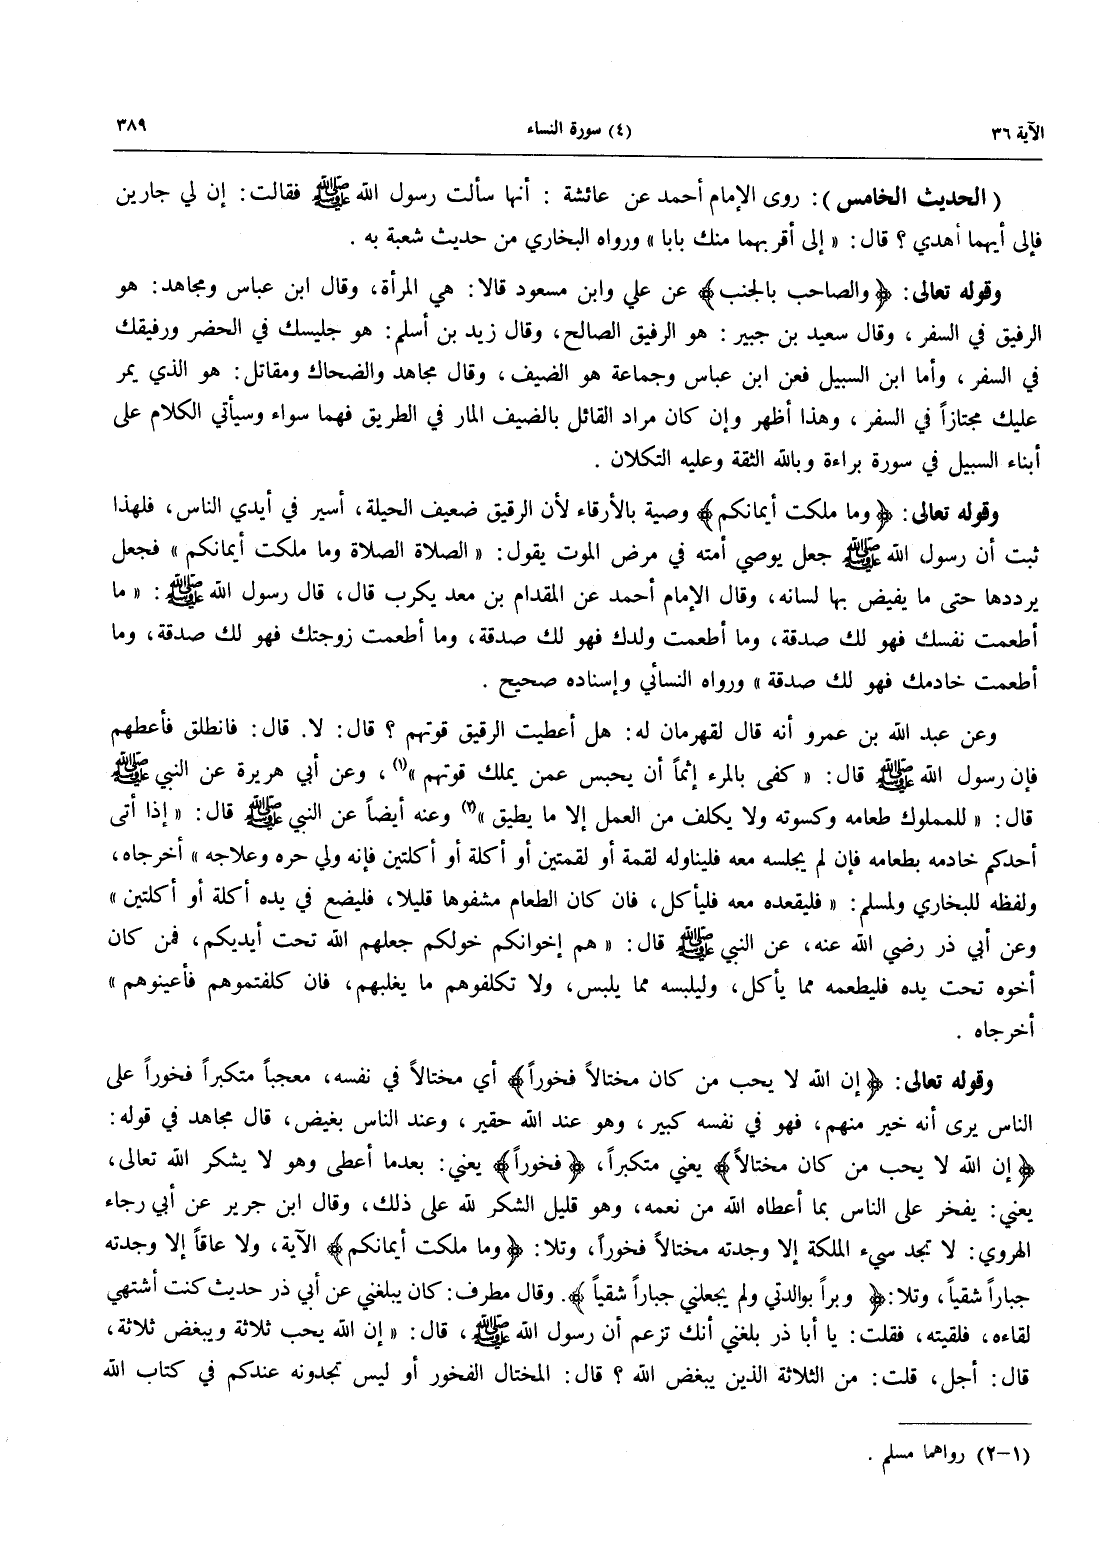 الآية ٣٦ (٤) سورة النساء ٣٨٩
( الحديث الخامس ) : روى الإمام أحمد عن عائشة : أنها سألت رسول الله ﷺ فقالت: إن لي جارين
فإلى أيهما أهدي ؟ قال: « إلى أقربهما منك بابا » ورواه البخاري من حديث شعبة به .
وقوله تعالى: ﴿والصاحب بالجنب﴾ عن علي وابن مسعود قالا: هي المرأة، وقال ابن عباس ومجاهد: هو
الرفيق في السفر ، وقال سعيد بن جبير : هو الرفيق الصالح، وقال زيد بن أسلم: هو جليسك في الحضر ورفيقك
في السفر ، وأما ابن السبيل فعن ابن عباس وجماعة هو الضيف، وقال مجاهد والضحاك ومقاتل: هو الذي يمر
عليك مجتازاً في السفر ، وهذا أظهر وإن كان مراد القائل بالضيف المار في الطريق فهما سواء وسيأتي الكلام على
أبناء السبيل في سورة براءة وبالله الثقة وعليه التكلان .
وقوله تعالى: ﴿وما ملكت أيمانكم﴾ وصية بالأرقاء لأن الرقيق ضعيف الحيلة، أسير في أيدي الناس، فلهذا
ثبت أن رسول الله ﷺ جعل يوصي أمته في مرض الموت يقول: « الصلاة الصلاة وما ملكت أيمانكم » فجعل
يرددها حتى ما يفيض بها لسانه، وقال الإمام أحمد عن المقدام بن معد يكرب قال، قال رسول الله ﷺ: « ما
أطعمت نفسك فهو لك صدقة، وما أطعمت ولدك فهو لك صدقة، وما أطعمت زوجتك فهو لك صدقة، وما
أطعمت خادمك فهو لك صدقة » ورواه النسائي وإسناده صحيح .
وعن عبد الله بن عمرو أنه قال لقهرمان له: هل أعطيت الرقيق قوتهم ؟ قال: لا. قال: فانطلق فأعطهم
فإن رسول الله ﷺ قال: « كفى بالمرء إثماً أن يحبس عمن يملك قوتهم »(١) ، وعن أبي هريرة عن النبي ﷺ
قال: « للمملوك طعامه وكسوته ولا يكلف من العمل إلا ما يطيق »(٢) وعنه أيضاً عن النبي ﷺ قال: « إذا أتى
أحدكم خادمه بطعامه فإن لم يجلسه معه فليناوله لقمة أو لقمتين أو أكلة أو أكلتين فإنه ولي حره وعلاجه » أخرجاه،
ولفظه للبخاري ولمسلم: « فليقعده معه فليأكل، فان كان الطعام مشفوها قليلا، فليضع في يده أكلة أو أكلتين »
وعن أبي ذر رضي الله عنه، عن النبي ﷺ قال: « هم إخوانكم خولكم جعلهم الله تحت أيديكم، فمن كان
أخوه تحت يده فليطعمه مما يأكل، وليلبسه مما يلبس، ولا تكلفوهم ما يغلبهم، فان كلفتموهم فأعينوهم »
أخرجاه .
وقوله تعالى: ﴿إن الله لا يحب من كان مختالاً فخوراً﴾ أي مختالاً في نفسه، معجباً متكبراً فخوراً على
الناس يرى أنه خير منهم، فهو في نفسه كبير ، وهو عند الله حقير ، وعند الناس بغيض، قال مجاهد في قوله:
﴿إن الله لا يحب من كان مختالاً﴾ يعني متكبراً، ﴿فخوراً﴾ يعني: بعدما أعطى وهو لا يشكر الله تعالى،
يعني: يفخر على الناس بما أعطاه الله من نعمه، وهو قليل الشكر لله على ذلك، وقال ابن جرير عن أبي رجاء
الهروي: لا تجد سيء الملكة إلا وجدته مختالاً فخوراً، وتلا: ﴿وما ملكت أيمانكم﴾ الآية، ولا عاقاً إلا وجدته
جباراً شقياً، وتلا:﴿ وبراً بوالدتي ولم يجعلني جباراً شقياً ﴾. وقال مطرف: كان يبلغني عن أبي ذر حديث كنت أشتهي
لقاءه، فلقيته، فقلت: يا أبا ذر بلغني أنك تزعم أن رسول الله ﷺ، قال: « إن الله يحب ثلاثة ويبغض ثلاثة،
قال: أجل، قلت: من الثلاثة الذين يبغض الله ؟ قال: المختال الفخور أو ليس تجدونه عندكم في كتاب الله
(١-٢) رواهما مسلم .